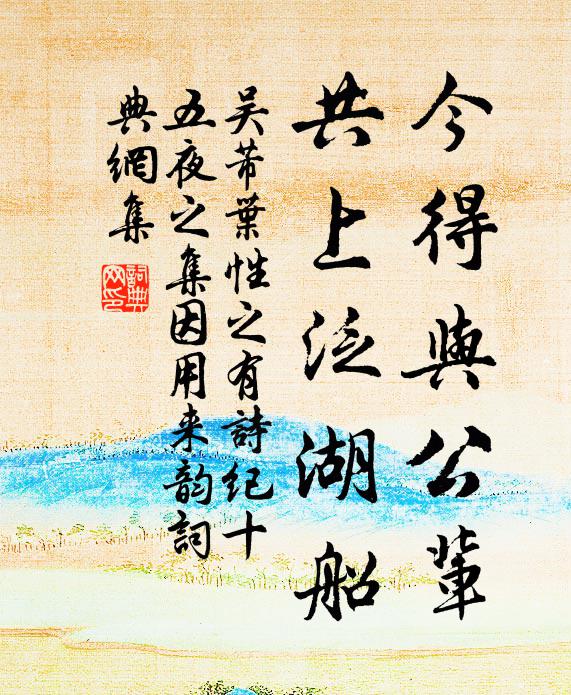 今得與公輩
共上泛湖船
吴芾葉性之有詩纪十
五夜之集因用来韵詞
典網集
詞典網印